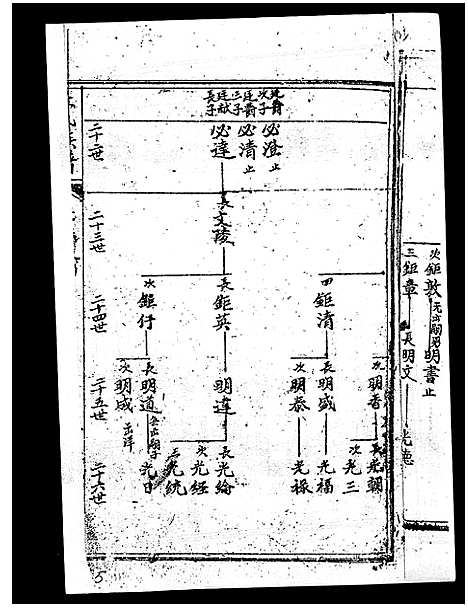 次 鉅敦 无出嗣男 明書 止
三 鉅章 長 明文 光德
次子 必澄 止
廷爵三子 必清 止
廷猷長子 必達
長 文陵
四 鉅清
長 鉅英
次 鉅仔
次 明香
長 明盛
次 明泰
明達
長 明道
次 明成 出洋
長 光朝
次 光三
光福
光祿
長 光綸
次 光經
三 光統
光日
二十二世
二十三世
二十四世
二十五世
二十六世
5